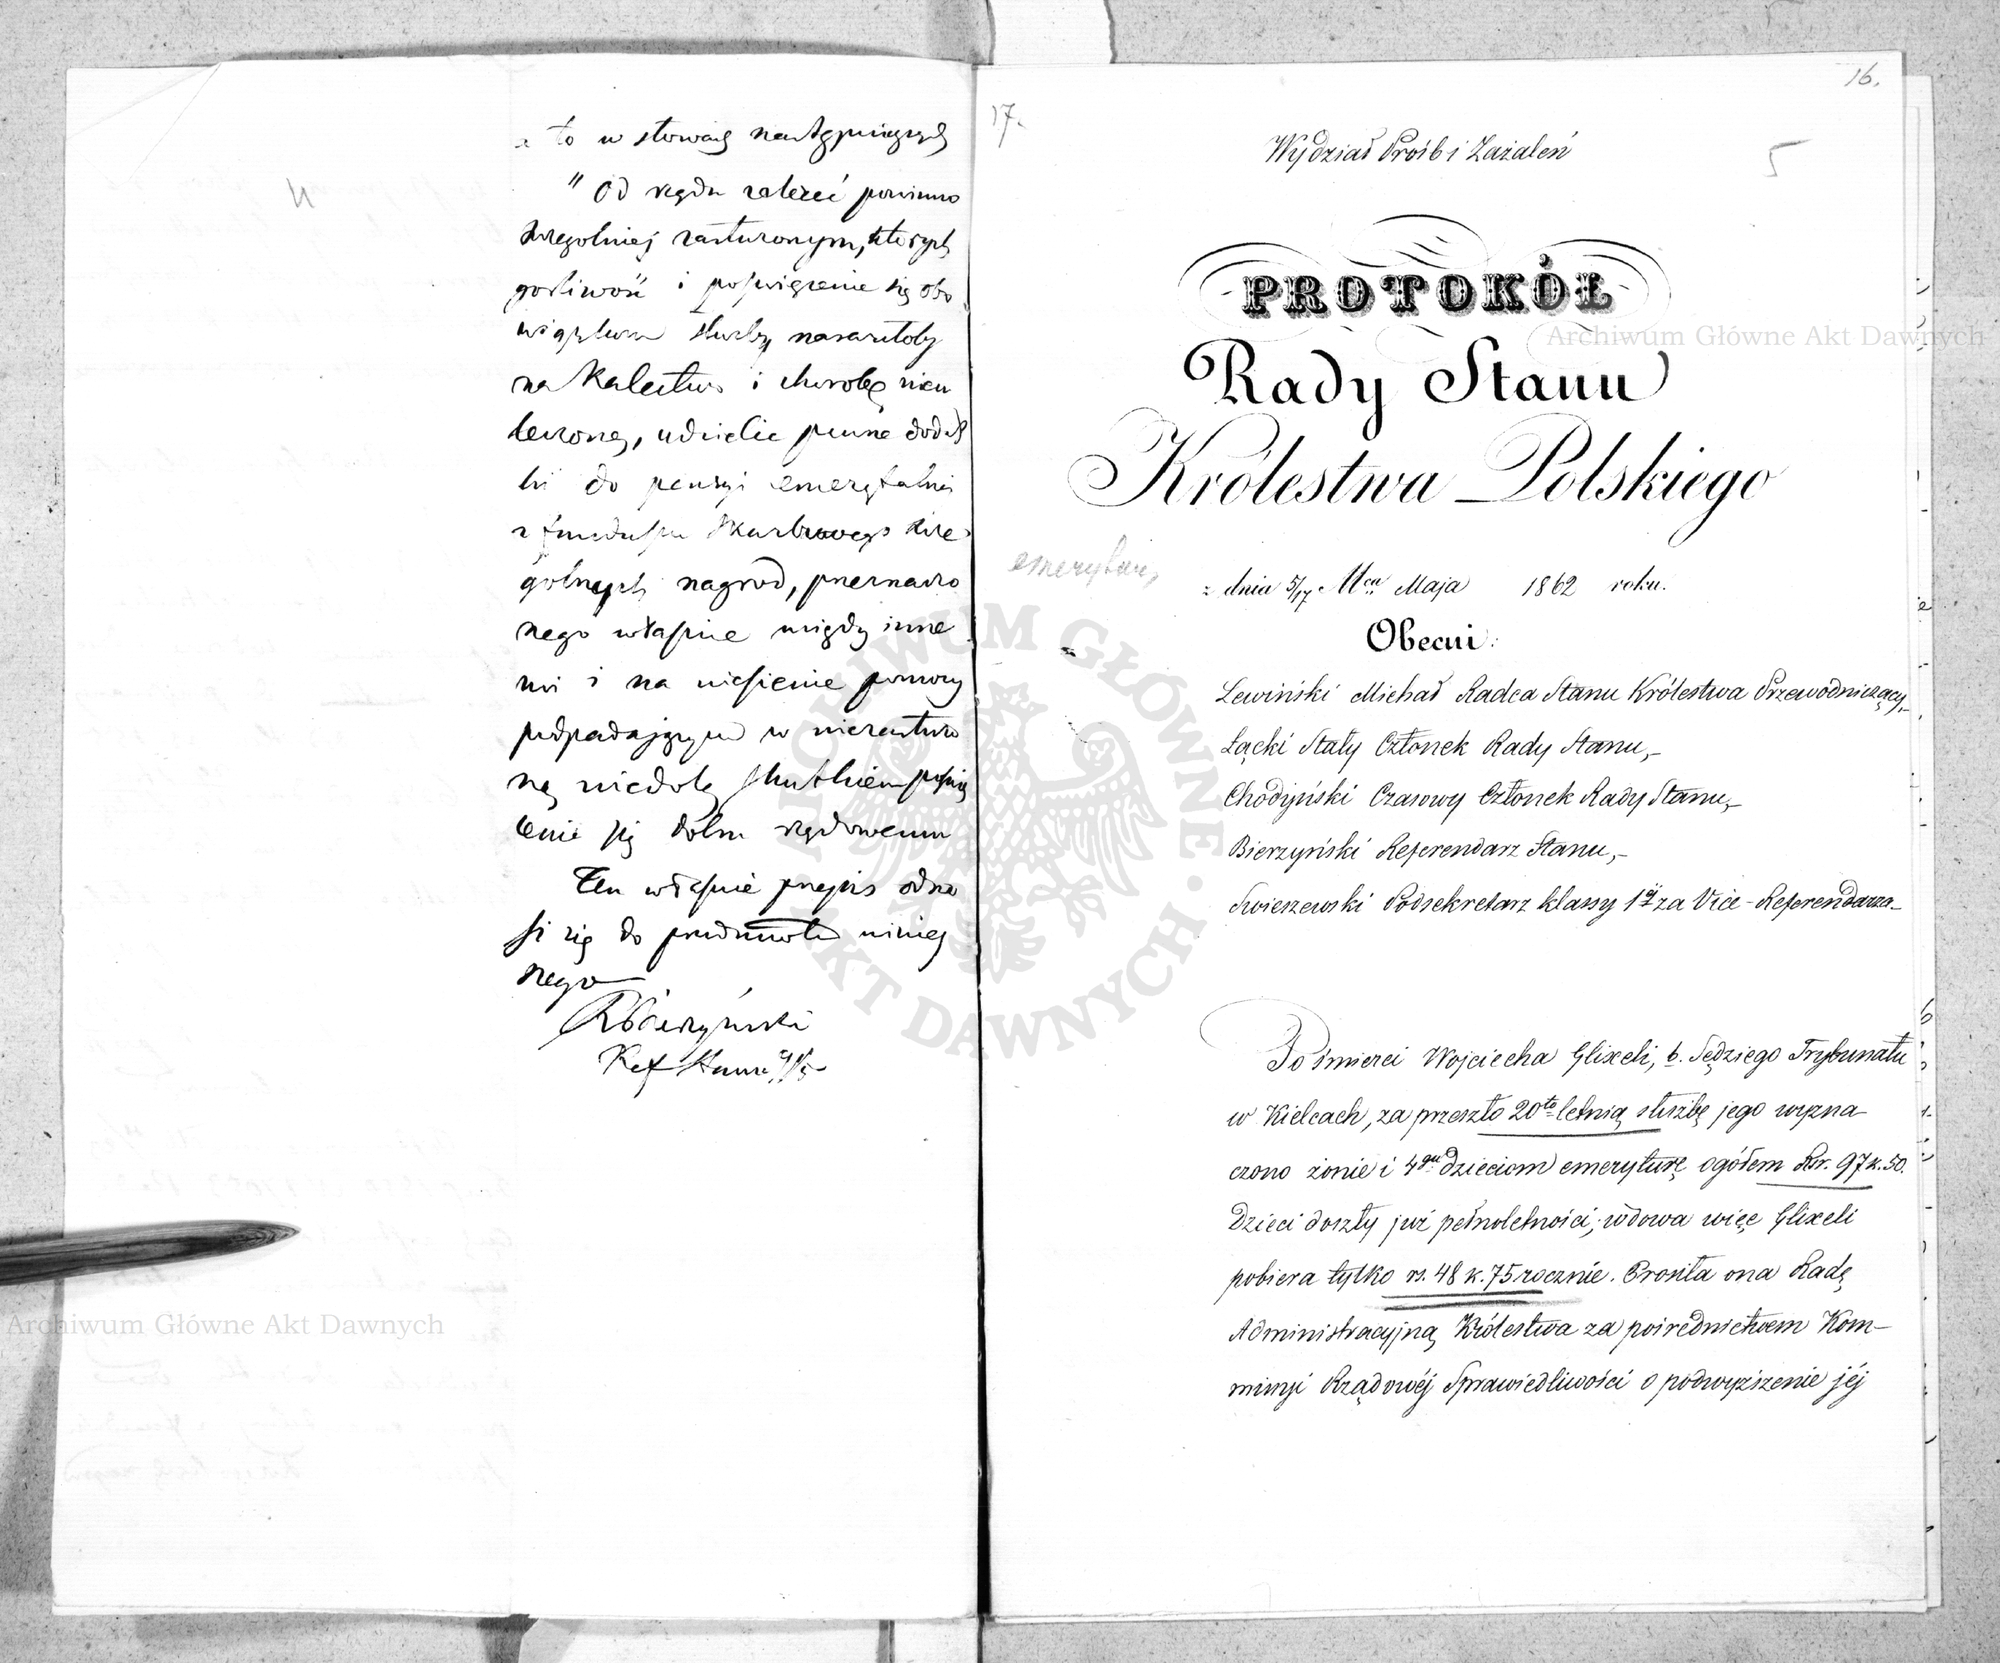 a to w słowach następujących
"Od rządu zależeć powinno
szczególniej zasłużonym, których
gorliwość i poświęcenie się obo
wiązkom służby naraziłoby
na kalectwo i chorobę nieu
leczoną, udzielić pewne dodat
ki do pensyi emerytalnej
z funduszu Skarbowego szcze
gólnych nagród, przeznaczo
nego właśnie między inne
mi i na niesienie pomocy
podpadającym w niezasłużo
ną niedolę skutkiem poświę
cenia się dobru rządowemu
Ten właśnie przepis odno
si się do przedmiotu niniej
szego
RBierzyński
Ref Stanu
17.
16.
5
Wydział Próśb i Zażaleń
PROTOKÓŁ
Rady Stanu
Królestwa Polskiego
z dnia 5/17 Mca Maja 1862 roku.
Obecni:
Lewiński Michał Radca Stanu Królestwa Przewodniczący,–
Łącki Stały Członek Rady Stanu,–
Chodyński Czasowy Członek Rady Stanu,–
Bierzyński Referendarz Stanu,–
Swieszewski Podsekretarz klassy 1éj za Vice-Referendarza–
Po śmierci Wojciecha Glixeli, b. Sędziego Trybunału
w Kielcach, za przeszło 20to letnią służbę jego wyzna–
czono żonie i 4gu dzieciom emeryturę ogółem Rsr. 97 k. 50.
Dzieci doszły już pełnoletności; wdowa więc Glixeli
pobiera tylko rs. 48 k. 75 rocznie. Prosiła ona Radę
Administracyjną Królestwa za pośrednictwem Kom–
missyi Rządowéj Sprawiedliwości o podwyższenie jéj
Archiwum Główne Akt Dawnych
Archiwum Główne Akt Dawnych
ARCHIWUM GŁÓWNE AKT DAWNYCH